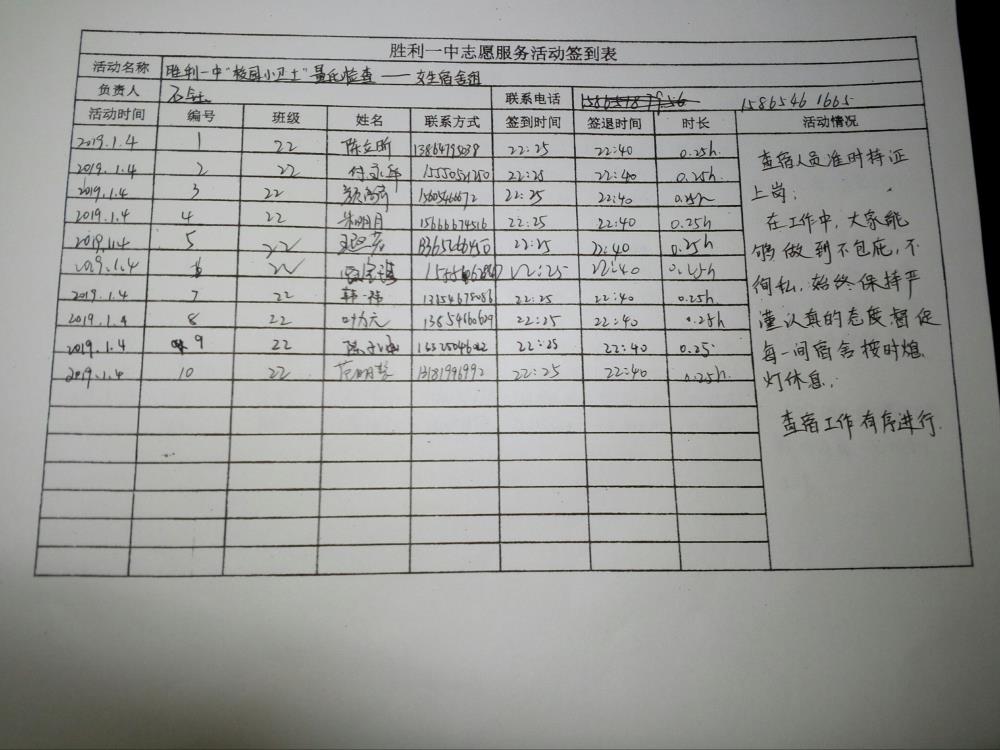 胜利一中志愿服务活动签到表
活动名称 胜利一中"校园小卫士"量化检查——女生宿舍组
负责人 联系电话 1586546 1665
活动时间 编号 班级 姓名 联系方式 签到时间 签退时间 时长 活动情况
2019.1.4 1 22 22:25 22:40 0.25h
2019.1.4 2 22 22:25 22:40 0.25h
2019.1.4 3 22 22:25 22:40 0.25h
2019.1.4 4 22 朱明月 15666674516 22:25 22:40 0.25h
2019.1.4 5 22 22:25 22:40 0.25h
2019.1.4 22 22:25 22:40 0.25h
2019.1.4 7 22 韩祎 13154678086 22:25 22:40 0.25h
2019.1.4 8 22 叶方元 13854660609 22:25 22:40 0.25h
2019.1.4 9 22 22:25 22:40 0.25
2019.1.4 10 22 22:25 22:40 0.25h
查宿人员准时持证
上岗;
在工作中,大家能
够做到不包庇,不
徇私,始终保持严
谨认真的态度,督促
每一间宿舍按时熄
灯休息;
查宿工作有序进行.